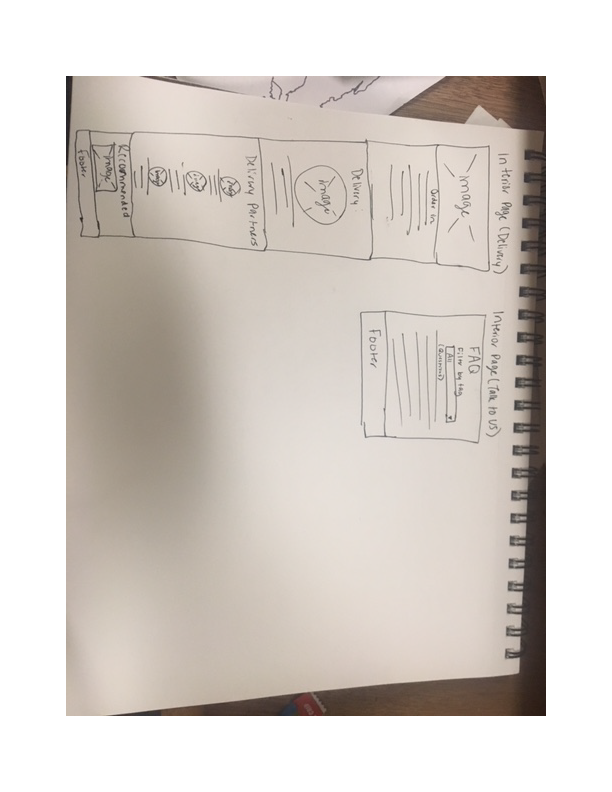 Interior Page (Delivery)
Image
Order in
Delivery
Image
Delivery Partners
Reccommended
Image
Footer
Interior Page (Talk to US)
FAQ
Filter by tag
All
Footer